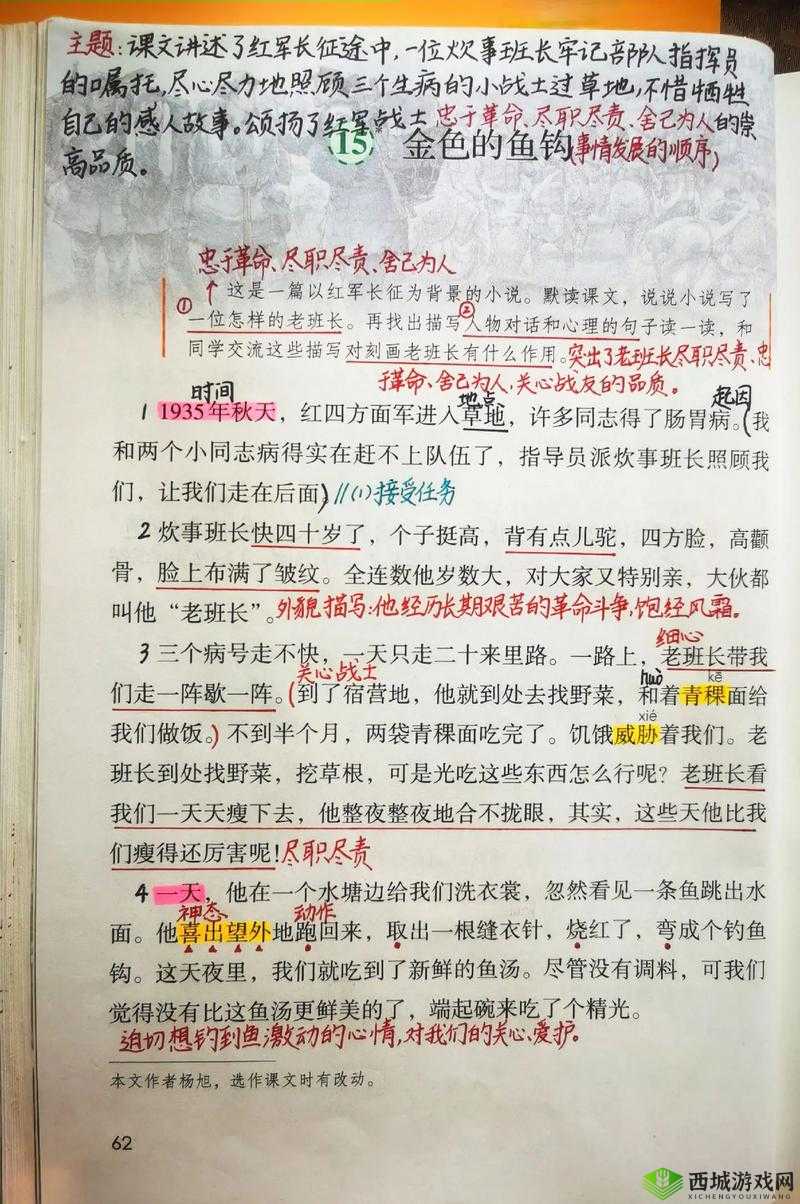 主题:课文讲述了红军长征途中,一位炊事班长牢记部队指挥员
的嘱托,尽心尽力地照顾三个生病的小战士过草地,不惜牺牲
自己的感人故事。颂扬了红军战士忠于革命、尽职尽责、舍己为人的崇
高品质。
15 金色的鱼钩(事情发展的顺序)
忠于革命、尽职尽责、舍己为人
①↑这是一篇以红军长征为背景的小说。默读课文,说说小说写了
一位怎样的老班长。再找出描写②人物对话和心理的句子读一读,和
同学交流这些描写对刻画老班长有什么作用。突出了老班长尽职尽责、忠
于革命、舍己为人,关心战友的品质。
时间 地点 起因
1 1935年秋天,红四方面军进入草地,许多同志得了肠胃病。(我
和两个小同志病得实在赶不上队伍了,指导员派炊事班长照顾我
们,让我们走在后面)//(1)接受任务
2 炊事班长快四十岁了,个子挺高,背有点儿驼,四方脸,高颧
骨,脸上布满了皱纹。全连数他岁数大,对大家又特别亲,大伙都
叫他“老班长”。外貌描写:他经历长期艰苦的革命斗争,饱经风霜。
细心
3 三个病号走不快,一天只走二十来里路。一路上,老班长带我
关心战士 huó kē
们走一阵歇一阵。(到了宿营地,他就到处去找野菜,和着青稞面给
xié
我们做饭。)不到半个月,两袋青稞面吃完了。饥饿威胁着我们。老
班长到处找野菜,挖草根,可是光吃这些东西怎么行呢?老班长看
我们一天天瘦下去,他整夜整夜地合不拢眼,其实,这些天他比我
们瘦得还厉害呢!尽职尽责
4 一天,他在一个水塘边给我们洗衣裳,忽然看见一条鱼跳出水
神态 动作
面。他喜出望外地跑回来,取出一根缝衣针,烧红了,弯成个钓鱼
钩。这天夜里,我们就吃到了新鲜的鱼汤。尽管没有调料,可我们
觉得没有比这鱼汤更鲜美的了,端起碗来吃了个精光。
迫切想钓到鱼激动的心情,对我们的关心、爱护。
本文作者杨旭,选作课文时有改动。
62
西城游戏网
XICHENGYOUXIWANG